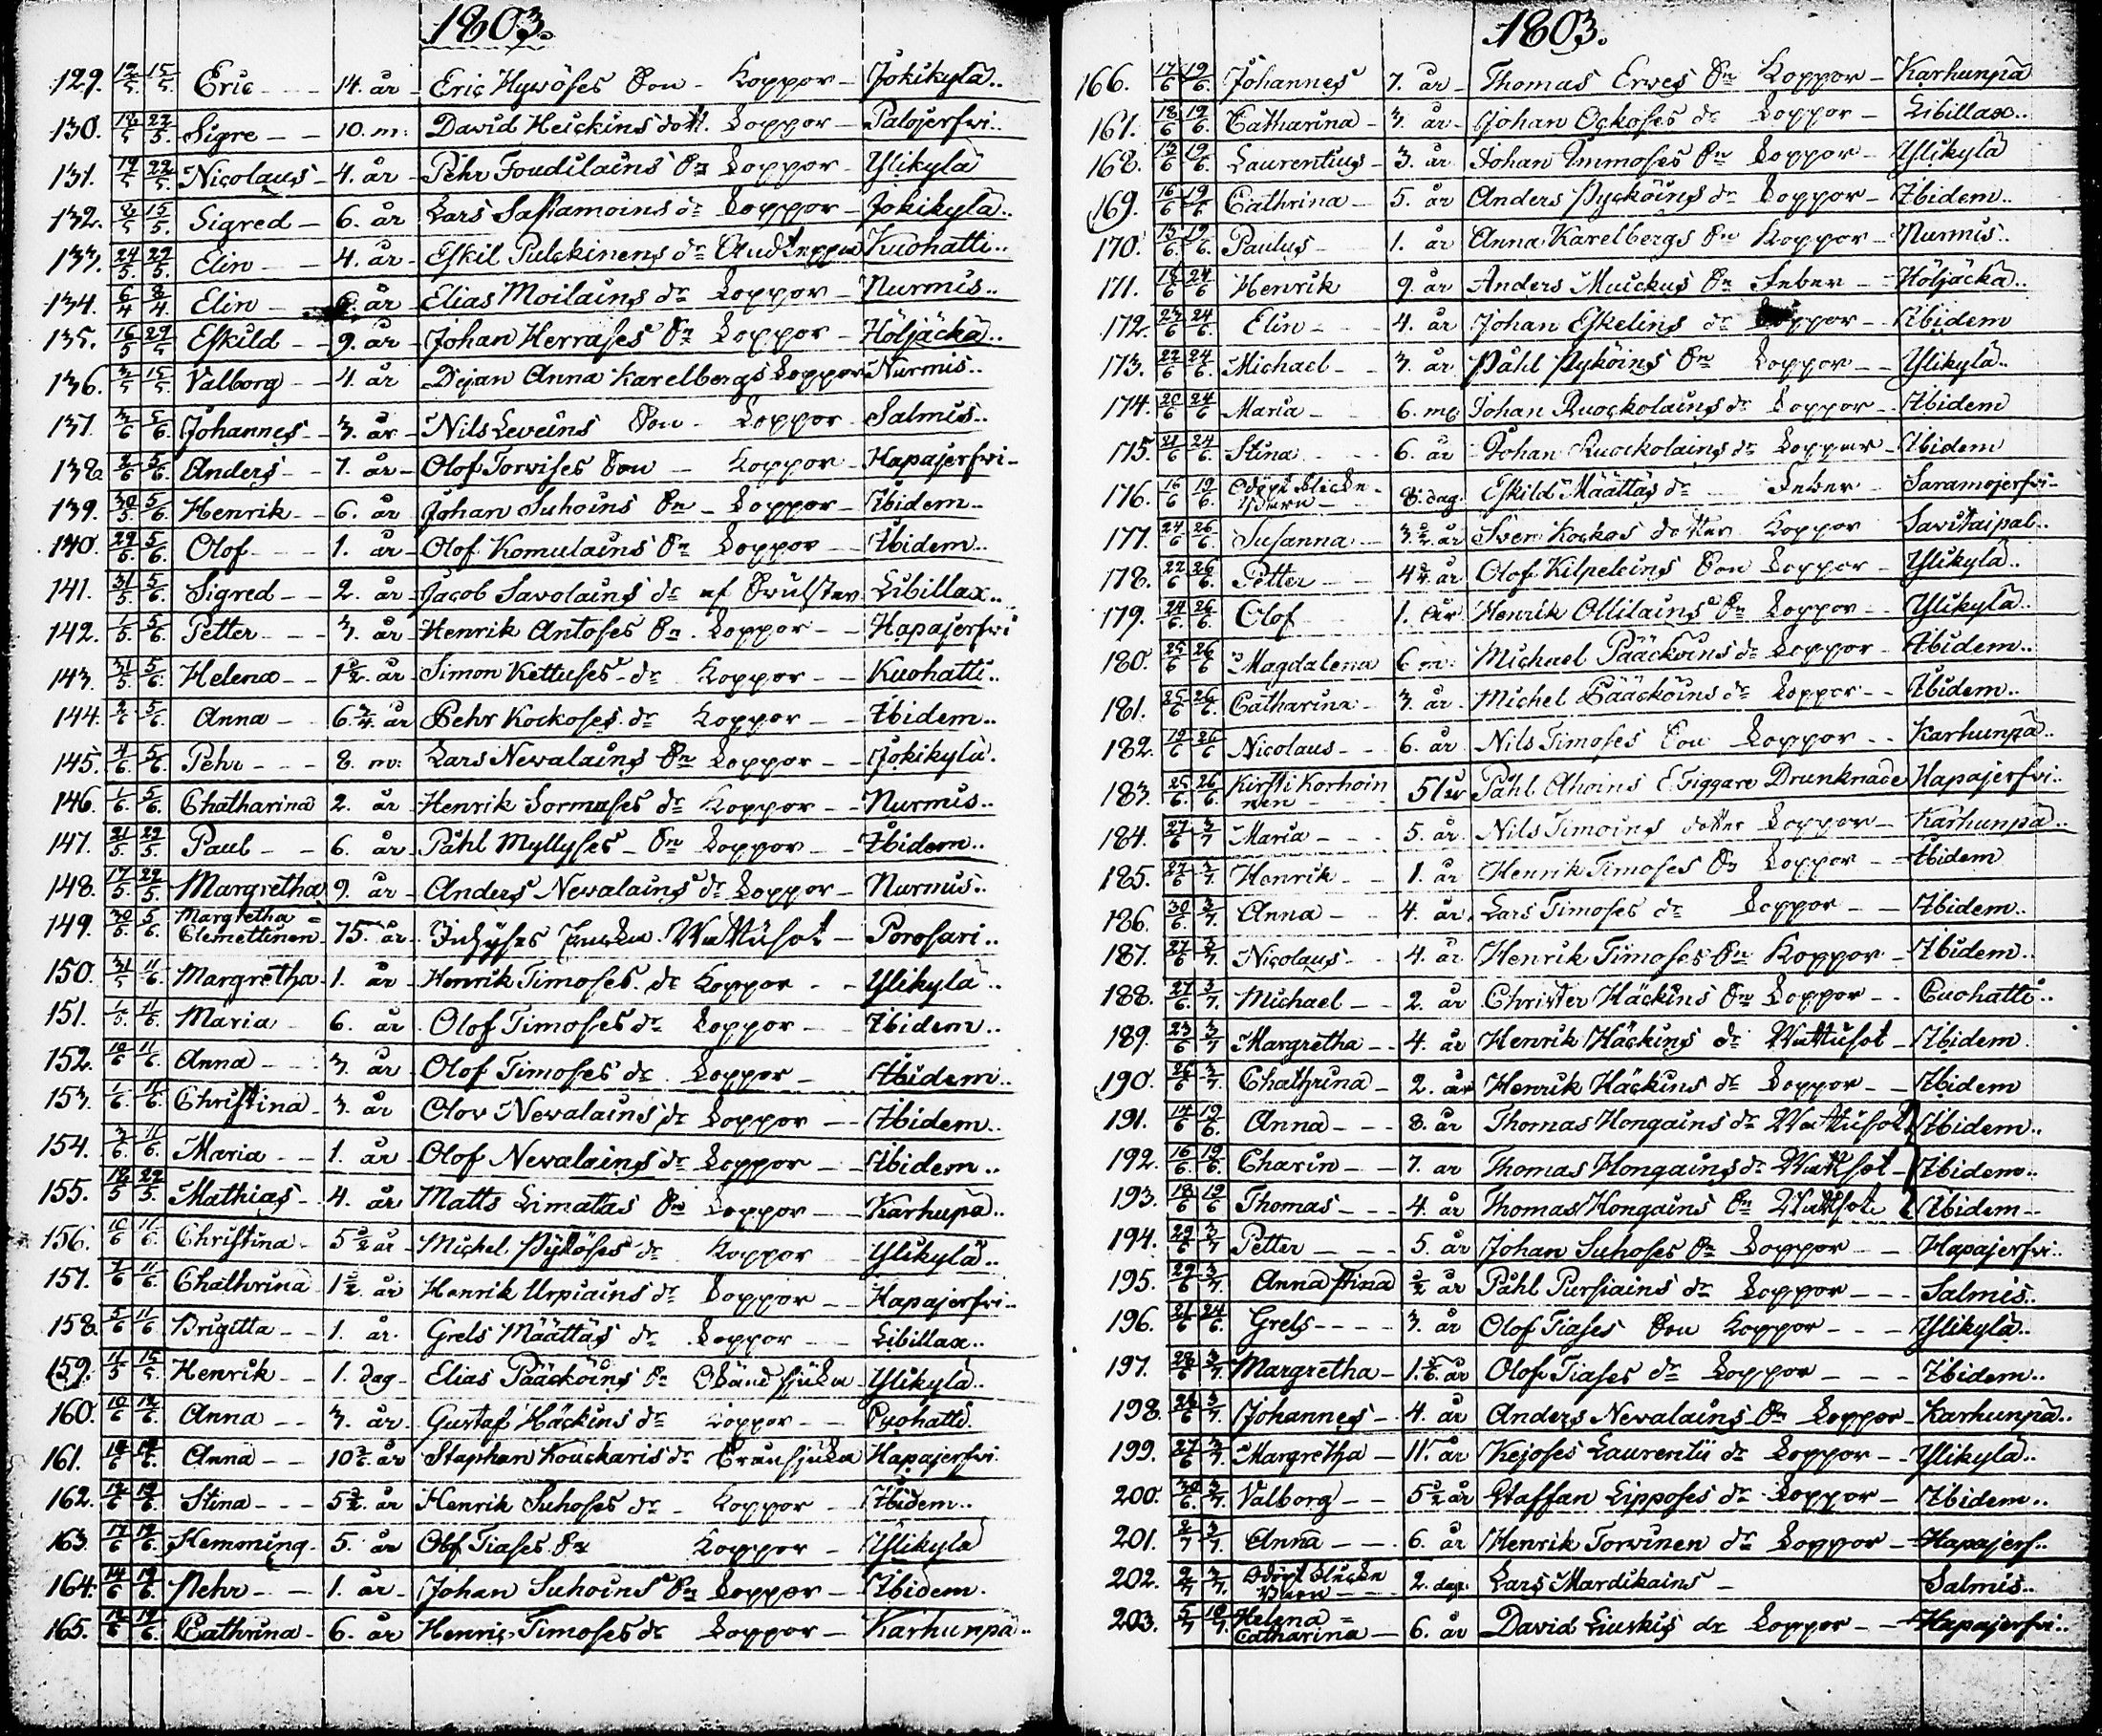 1803.
129. 12/5 15/5 Eric 14. år Eric Hywöses Son Koppor Jokikylä..
130. 18/5 22/5 Sigre 10. m: David Heickins dott. Koppor Palojerfwi..
131. 19/5 22/5 Nicolaus 4. år Pehr Toudilains Sn Koppor Ylikylä
132. 8/5 15/5 Sigred 6. år Lars Sassamoins dr Koppor Jokikylä..
133. 24/5 29/5 Elin 4. år Eskil Pulckinens dr Kuohatti..
134. 6/4 8/4 Elin 6. år Elias Moilains dr Koppor Nurmis..
135. 16/5 29/5 Eskild 9. år Johan Herrases Sn Koppor Höljäckä..
136. 3/5 15/5 Valborg 4. år Dejan Anna Karelbergs Koppor Nurmis..
137 3/6 5/6 Johannes 3. år Nils Leveins Son Koppor Salmis..
138 2/6 5/6 Anders 7. år Olof Torwises Son Koppor Hapajerfwi
139. 30/5 5/6 Henrik 6. år Johan Suhoins Sn Koppor Ibidem
140. 29/5 5/6 Olof 1. år Olof Komulains Sn Koppor Ibidem..
141. 31/5 5/6 Sigred 2. år Jacob Savolains dr af Swulsten Libillax..
142. 1/5 5/6 Petter 3. år Henrik Antoses Sn Koppor Hapajerfwi
143. 31/5 5/6 Helena 1 1/2 år Simon Kettuses dr Koppor Kuohatti..
144. 2/6 5/6 Anna 6 3/4 år Pehr Kockoses dr Koppor Ibidem..
145. 4/6 5/6 Pehr 8. m: Lars Nevalains Sn Koppor Jokikylä.
146. 1/6 5/6 Chatharina 2. år Henrik Sormuses dr Koppor Nurmis..
147. 21/5 22/5 Paul 6. år Påhl Myllyses Sn Koppor Ibidem..
148. 17/5 22/5 Margretha 9. år Anders Nevalains dr Koppor Nurmis..
149. 30/5 5/6 Margretha Clemettinen 75. år Porosari..
150. 31/5 11/6 Margretha 1. år Henrik Timoses dr Koppor Ylikylä..
151. 1/5 11/6 Maria 6. år Olof Timoses dr Koppor Ibidem..
152. 10/6 11/6 Anna 3. år Olof Timoses dr Koppor Ibidem..
153. 1/6 11/6 Christina 3. år Olov Nevalains dr Koppor Ibidem..
154. 3/6 11/6 Maria 1. år Olof Nevalains dr Koppor Ibidem..
155. 18/5 22/5 Mathias 4. år Matts Limattas Sn Koppor Karhupä..
156. 10/6 11/6 Christina 5 1/2 år Michel Pyköses dr Koppor Ylikylä..
157. 7/6 11/6 Chathrina 1 1/2 år Henrik Urpiains dr Koppor Hapajerfwi..
158 5/6 11/6 Brigitta 1. år. Grels Määttäs dr Koppor Libillax..
159. 11/5 15/5 Henrik 1. dag Elias Pääcköins Sn Okänd sjuka Ylikylä..
160. 10/6 12/6 Anna 3. år Gustaf Häckins dr Koppor Cuohatti
161. 19/6 Anna 10 1/2 år Staphan Kouckaris dr Hapajerfwi
162. 12/6 19/6 Stina 5 1/2 år Henrik Suhoses dr Koppor Ibidem..
163 17/6 19/6 Hemming 5. år Olof Tiases Sn Koppor Ylikylä
164. 14/6 19/6 Pehr 1. år Johan Suhoins Sn Koppor Ibidem.
165. 12/6 19/6 Cathrina 6. år Henric Timoses dr Koppor Karhunpä..
1803.
166. 17/6 19/6 Johannes 7. år Thomas Erwes Sn Koppor Karhunpä
167. 18/6 19/6 Catharina 3. år Johan Ockoses dr Koppor Libillax..
168. 13/6 19/6 Laurentius 3. år Johan Immoses Sn Koppor Ylikylä
169. 16/6 19/6 Cathrina 5. år Anders Pycköins dr Koppor Ibidem..
170. 13/6 19/6 Paulus 1. år Anna Karelbergs Sn Koppor Nurmis..
171. 18/6 24/6 Henrik 9. år Anders Muickus Sn Feber Höljäckä..
172. 23/6 24/6 Elin 4. år Johan Eskelins dr Koppor Ibidem
173. 22/6 24/6 Michael 3. år Påhl Pyköins Sn Koppor Ylikylä..
174. 20/6 24/6 Maria 6. m Johan Ruockolains dr Koppor Ibidem
175. 21/6 24/6 Stina 6. år Johan Ruockolains dr Koppor Ibidem
176. 16/6 19/6 Odöpt flicke barn 8. dag. Eskild Määttäs dr Feber Saramojerfwi
177. 24/6 26/6 Susanna 3 1/2 år Sven Kockos dotter Koppor Savitaipal..
178. 22/6 26/6 Petter 4 3/4 år Olof Kilpeleins Son Koppor Ylikylä..
179. 24/6 26/6 Olof 1. år Henrik Ollilains Sn Koppor Ylikylä..
180. 25/6 26/6 Magdalena 6 m: Michael Pääcköins dr Koppor Ibidem..
181. 25/6 26/6 Catharina 3. år Michel Pääcköins dr Koppor Ibidem..
182. 19/6 26/6 Nicolaus 6. år Nils Timoses Son Koppor Karhunpä..
183. 25/6 26/6 Kirsti Korhoinnen 51 år Påhl Ahoins E. Tiggare Drunknade Hapajerfwi..
184. 27/6 3/7 Maria 5. år Nils Timoins dotter Koppor Karhunpä..
185. 27/6 3/7 Henrik 1. år Henrik Timoses Sn Koppor Ibidem
186. 30/6 3/7 Anna 4. år Lars Timoses dr Koppor Ibidem..
187. 27/6 3/7 Nicolaus 4. år Henrik Timoses Sn Koppor Ibidem..
188. 27/6 3/7 Michael 2. år Christer Häckins Sn Koppor Cuohatti..
189. 23/6 3/7 Margretha 4. år Henrik Häckins dr Wattusot Ibidem.
190. 26/6 3/7 Chathrina 2. år Henrik Häckins dr Koppor Ibidem
191. 14/6 19/6 Anna 8. år Thomas Hongains dr Wattusot Ibidem..
192. 16/6 19/6 Charin 7. år Thomas Hongains dr Wattsot Ibidem..
193. 18/6 19/6 Thomas 4. år Thomas Hongains Sn Wattsot Ibidem
194. 29/6 3/7 Petter 5. år Johan Suhoses Sn Koppor Hapajerfwi..
195. 29/6 3/7 Anna Stina 1/2 år Påhl Pursiains dr Koppor Salmis..
196. 21/6 24/6 Grels 3. år Olof Tiases Son Koppor Ylikylä..
197. 28/6 3/7 Margretha 1 år Olof Tiases dr Koppor Ibidem..
198. 28/6 3/7 Johannes 4. år Anders Nevalains Sn Koppor Karhunpä..
199. 27/6 3/7 Margretha 11. år Kejoses Laurentii dr Koppor Ylikylä..
200. 30/6 3/7 Valborg 5 1/2 år Staffan Lipposes dr Koppor Ibidem..
201. 2/7 3/7 Anna 6. år Henrik Torvinen dr Koppor Hapajerf..
202. 2/7 3/7 Odöpt flicke barn 2. dag. Lars Mardikains Salmis..
203. 5/7 10/7 Helena Catharina 6. år David Liuskis dr Koppor Hapajerfwi..